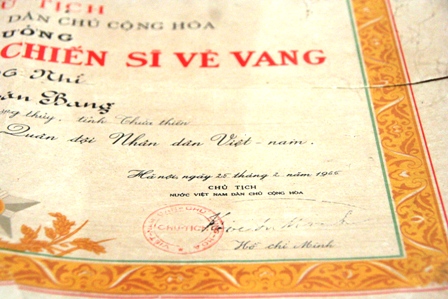 Ủ TỊCH
DÂN CHỦ CỘNG HÒA
ƯỞNG
CHIẾN SĨ VẺ VANG
Nhì
Bang
thủy, tỉnh Thừa thiên
Quân đội Nhân dân Việt-nam.
Hà-nội, ngày 25 tháng 2 năm 1966
CHỦ TỊCH
NƯỚC VIỆT NAM DÂN CHỦ CỘNG HÒA
CHỦ TỊCH
Hồ chí Minh